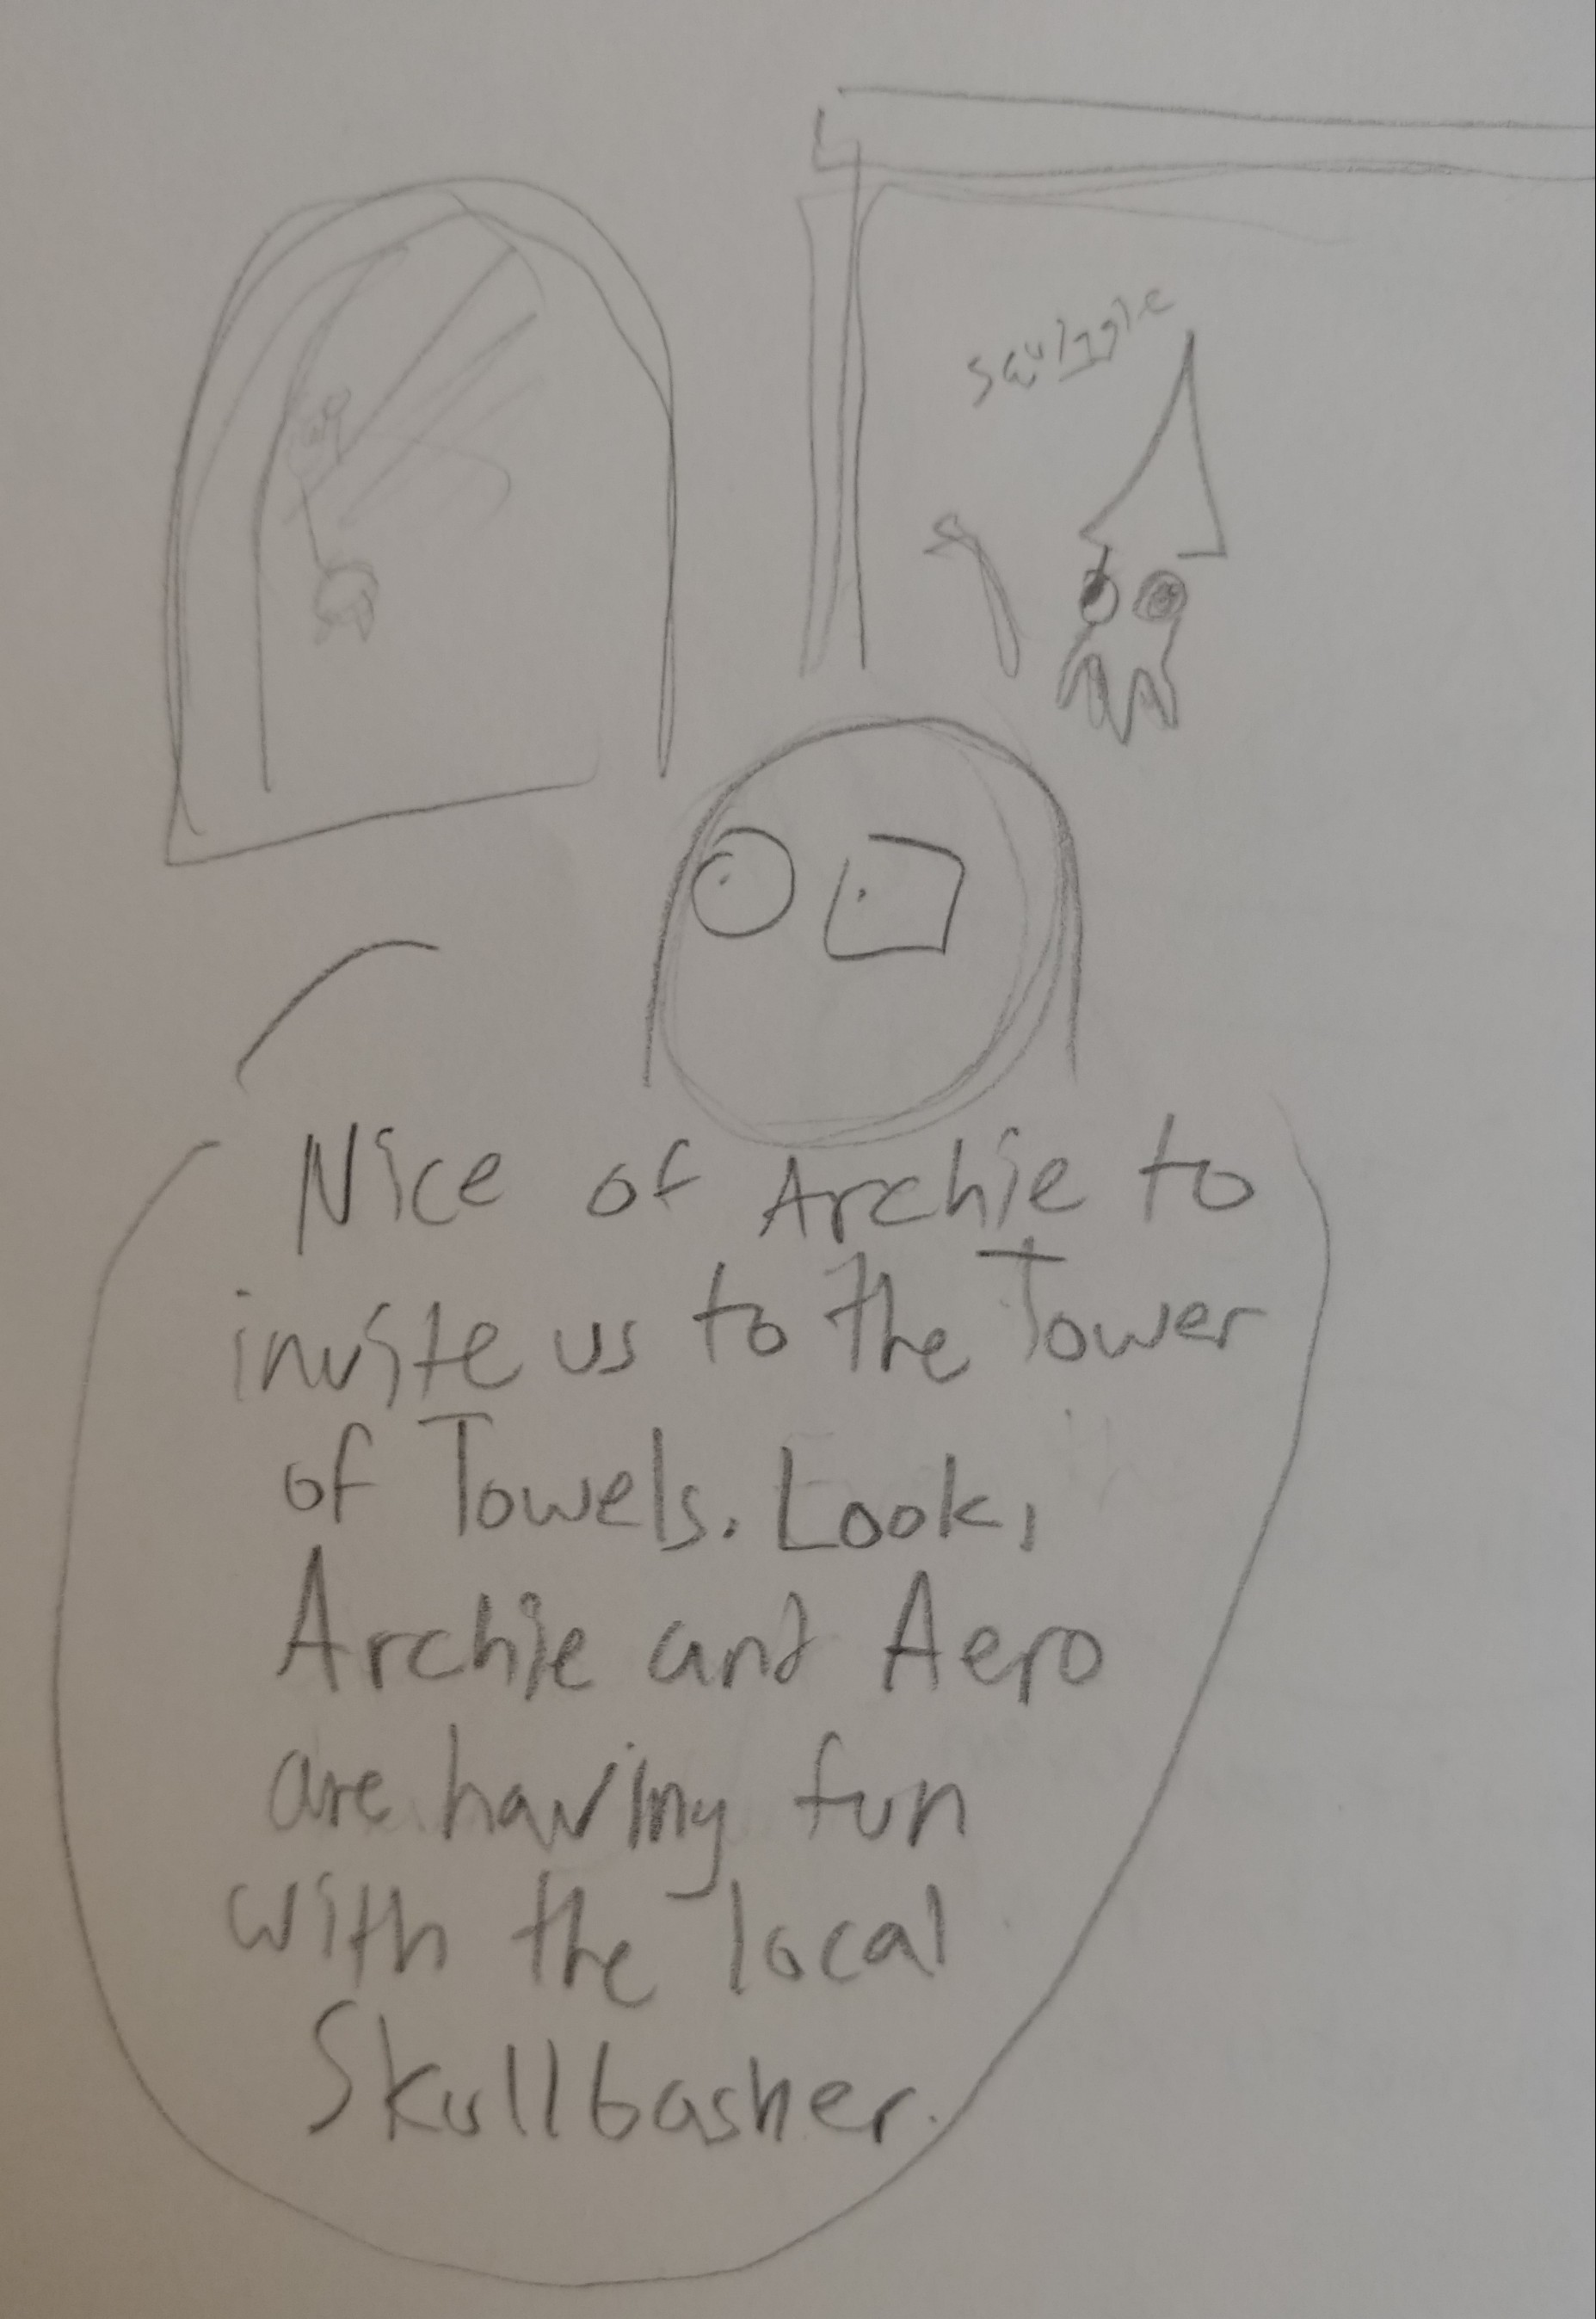 squiggle
Nice of Archie to
invite us to the Tower
of Towels. Look,
Archie and Aero
are having fun
with the local
Skullbasher.